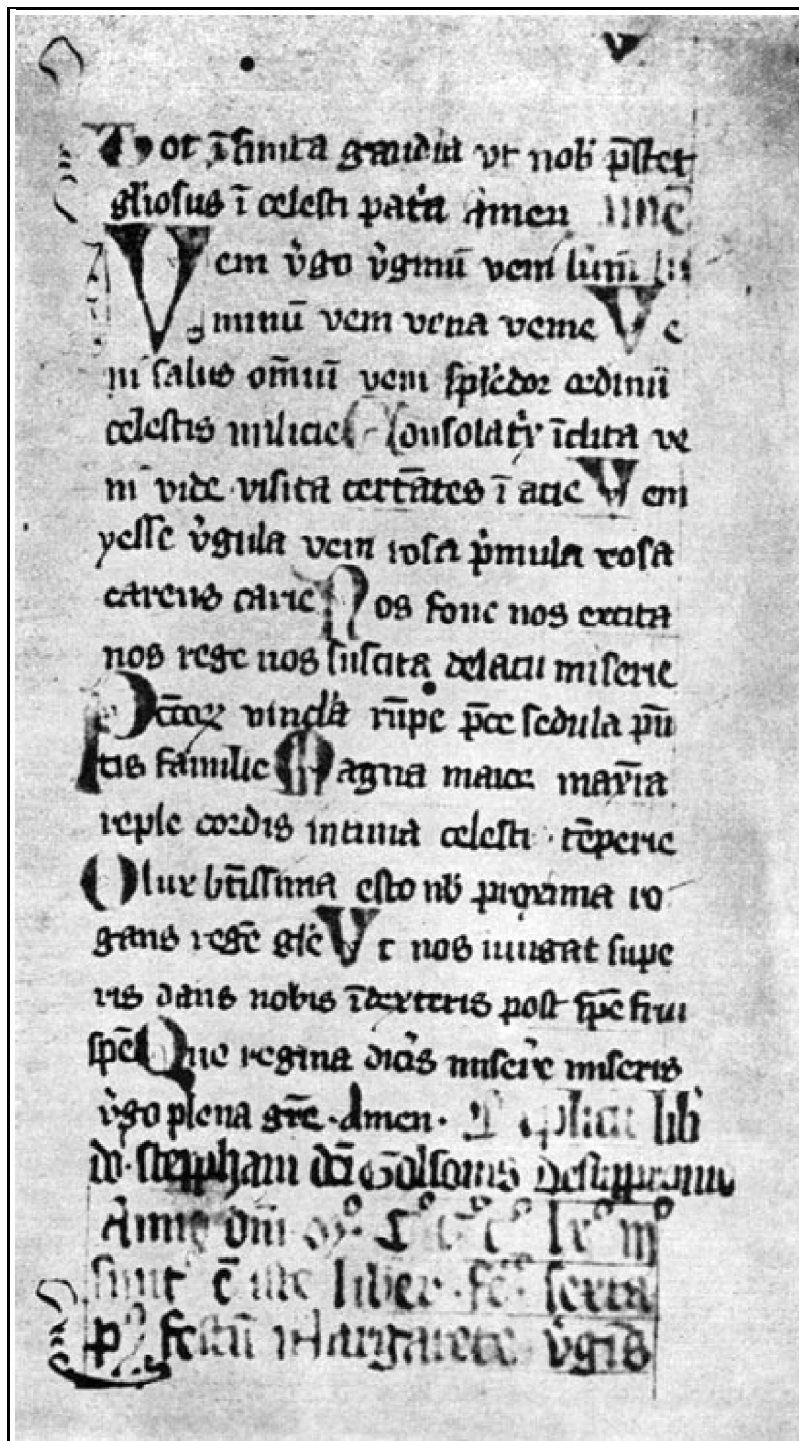 ot īfinita gaudia vt nob p̄stet
gl̄iosus ī celesti pat̾a Amen
Veni v̾go v̾ginū veni lūm̄ lu
minū veni vena venie Ve
ni salus om̄iū veni splēdor ordinū
celestis milicie Consolat̾x īclita ve
ni vide visita certātes ī acie Veni
yesse v̾gula veni iosa p̾mula rosa
carens carie Nos foue nos excita
nos rege nos suscita delacu miserie
Pcc̄oꝝ vincl̾a rūpe p̄ce sedula pu̅
tis familie Magna mater mar̄ia
reple cordis intima celesti tēperie
O lux bt̄issima esto nb̄ proxima ro
gans regē gl̄e Vt nos iungat supe
ris dans nobis īdexteris post spē frui
spē Que regina dic̾is miser̾e miseris
v̾go plena gr̄e Amen. Explicit lib̾
do. stephani dc̄i
Anno dn̄i
ē iste liber fc̄ sexta
p̾ festū Margarete v̾gīs